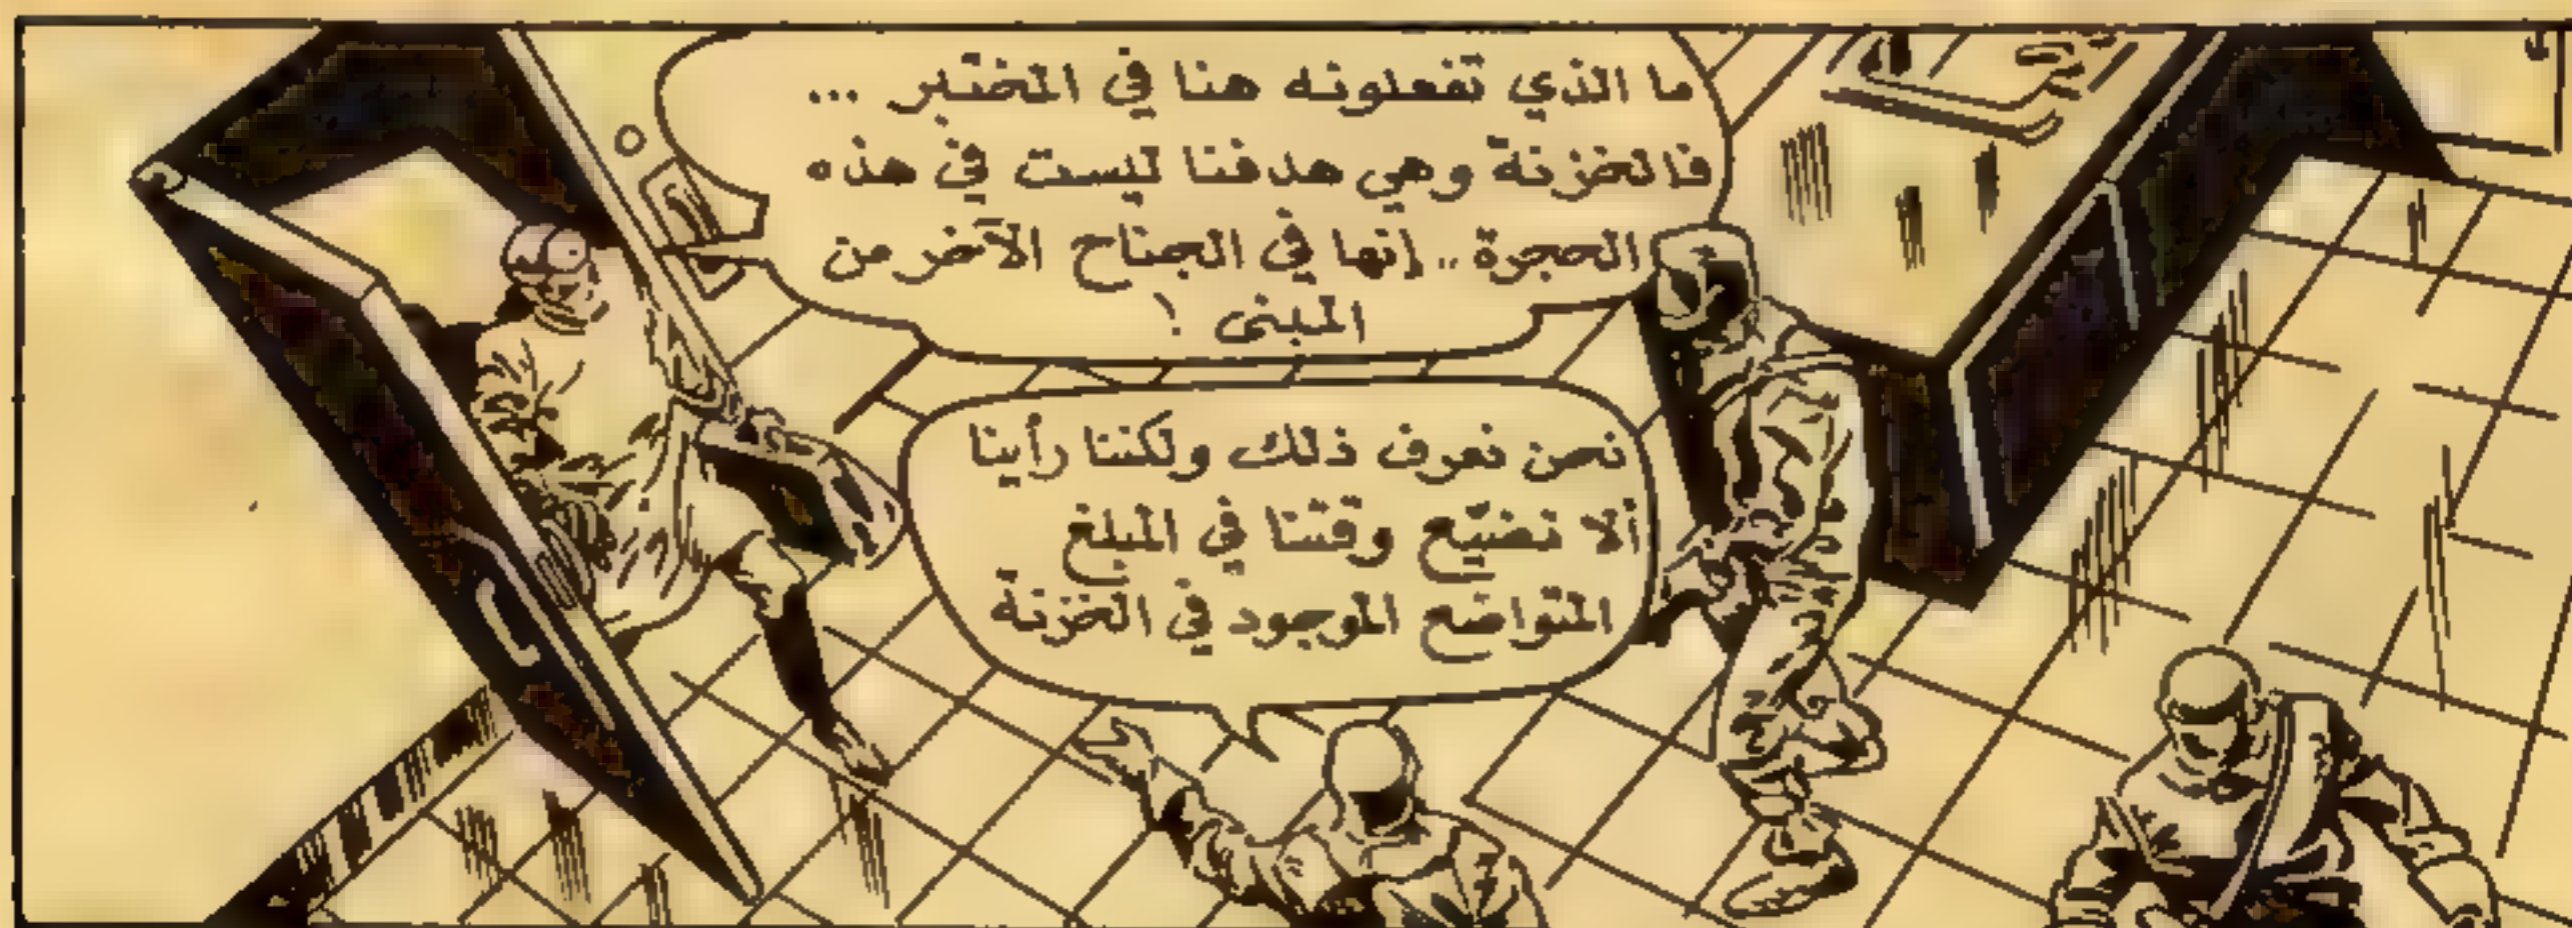 ما الذي تفعلونه هنا في المختبر ...
فالخزنة وهي هدفنا ليست في هذه
الحجرة .. إنها في الجناح الآخر من
المبنى ؟
نحن نعرف ذلك ولكننا رأينا
ألا نضيّع وقتنا في المبلغ
المتواضع الموجود في الخزنة